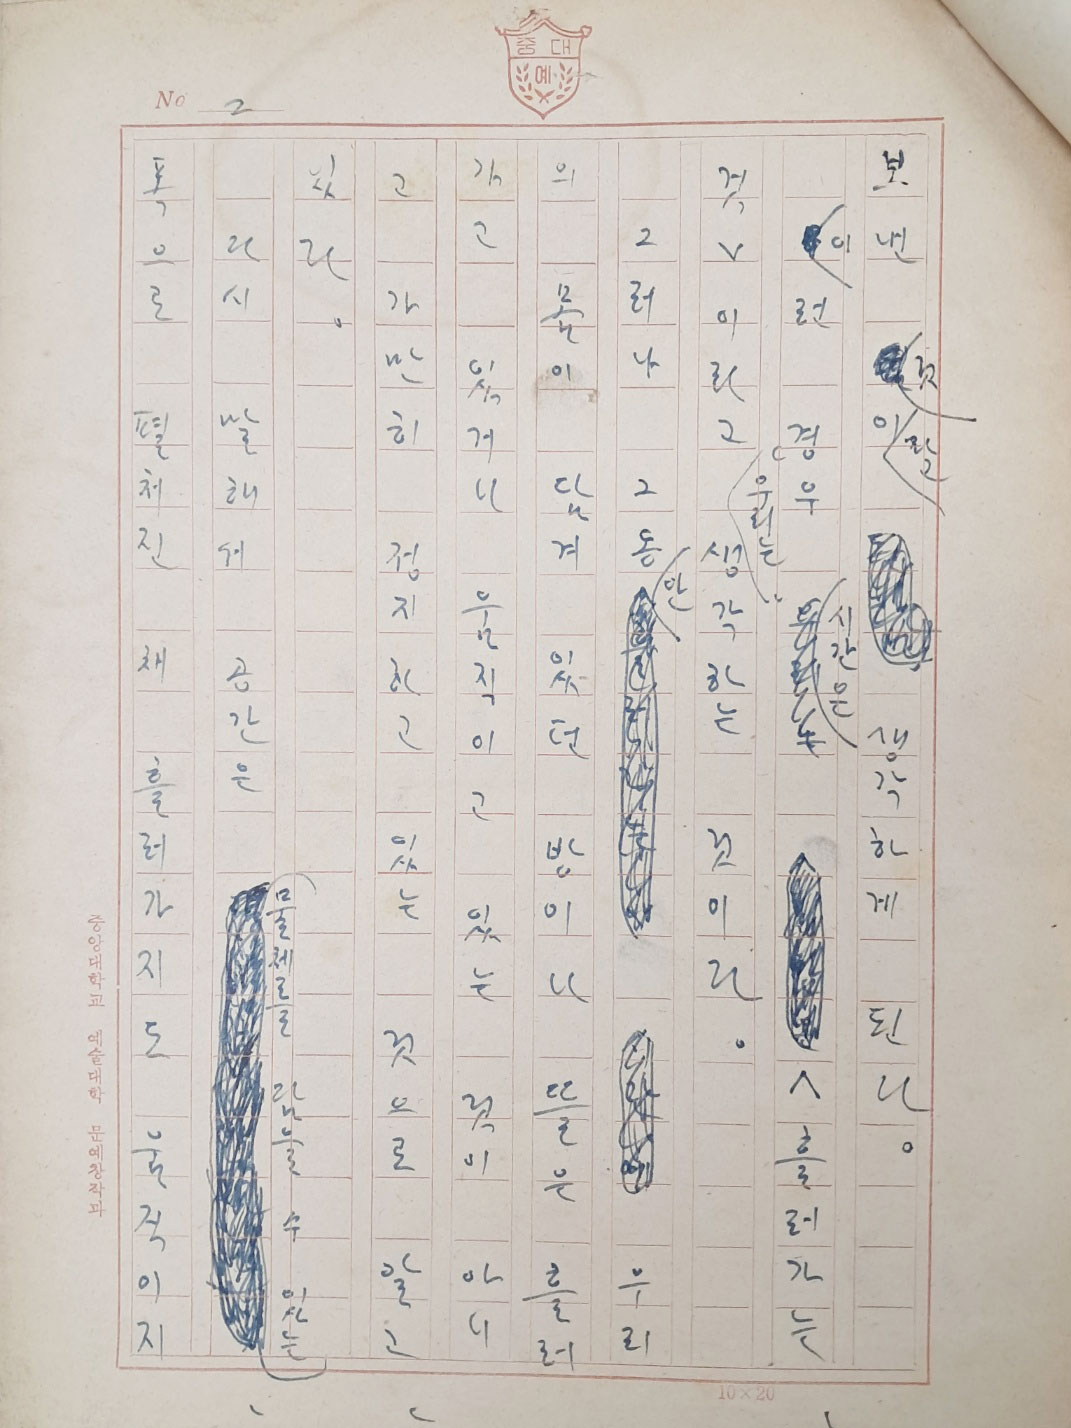 중대
예
No 2
보낸 것이라고 생각하게 된다.
이런 경우 시간은 흘러가는
것이라고 우리는 생각하는 것이다.
그러나 그동안 우리
의 몸이 담겨 있던 방이나 뜰은 흘러
가고 있거나 움직이고 있는 것이 아니
고 가만히 정지하고 있는 것으로 알고
있다.
다시 말해서 공간은 물체를 담을 수 있는
폭으로 펼쳐진 채 흘러가지도 움직이지
중앙대학교 예술대학 문예창작과
10×20